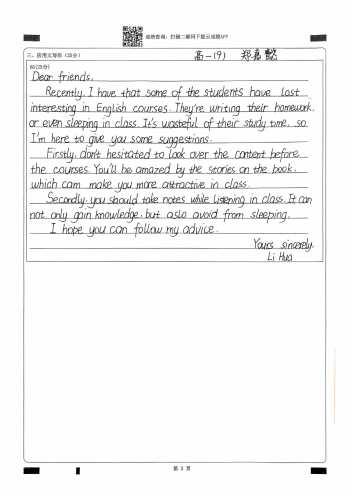 成绩查询：扫描二维码下载云成绩APP
三、应用文写作（25分）
高一(9) 郑嘉懿
65(25分)
Dear friends,
Recently, I have that some of the students have lost
interesting in English courses. They're writing their homework,
or even sleeping in class. It's wasteful of their study time, so
I'm here to give you some suggestions.
Firstly, don't hesitated to look over the content before
the courses. You'll be amazed by the stories on the book,
which cam make you more attractive in class.
Secondly, you should take notes while listening in class. It can
not only gain knowledge, but aslo avoid from sleeping.
I hope you can follow my advice.
Yours sincerely,
Li Hua
第 2 页